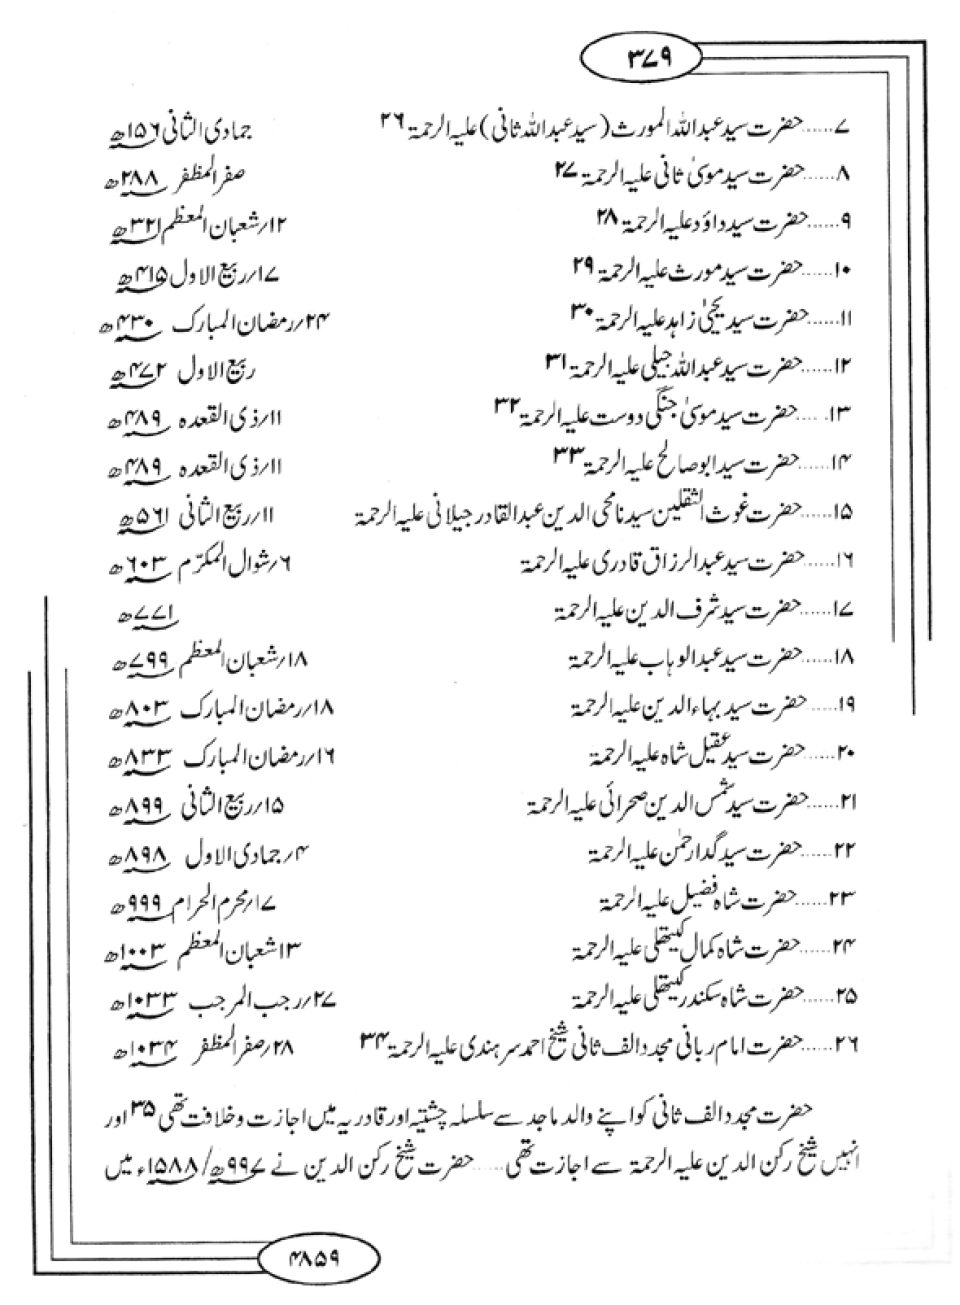 ۳۷۹
۷......حضرت سید عبداللہ المورث (سید عبداللہ ثانی) علیہ الرحمۃ ۲۶ جمادی الثانی ۱۵۶ھ
۸......حضرت سید موسیٰ ثانی علیہ الرحمۃ ۲۷ صفر المظفر ۲۸۸ھ
۹......حضرت سید داؤد علیہ الرحمۃ ۲۸ ۱۲/شعبان المعظم ۳۲۱ھ
۱۰......حضرت سید مورث علیہ الرحمۃ ۲۹ ۱۷/ربیع الاول ۴۱۵ھ
۱۱......حضرت سید یحییٰ زاہد علیہ الرحمۃ ۳۰ ۲۴/رمضان المبارک ۴۳۰ھ
۱۲......حضرت سید عبداللہ جیلی علیہ الرحمۃ ۳۱ ربیع الاول ۴۷۲ھ
۱۳......حضرت سید موسیٰ جنگی دوست علیہ الرحمۃ ۳۲ ۱۱/ذی القعدہ ۴۸۹ھ
۱۴......حضرت سید ابو صالح علیہ الرحمۃ ۳۳ ۱۱/ذی القعدہ ۴۸۹ھ
۱۵......حضرت غوث الثقلین سیدنا محی الدین عبدالقادر جیلانی علیہ الرحمۃ ۱۱/ربیع الثانی ۵۶۱ھ
۱۶......حضرت سید عبدالرزاق قادری علیہ الرحمۃ ۶/شوال المکرّم ۶۰۳ھ
۱۷......حضرت سید شرف الدین علیہ الرحمۃ ۷۷۱ھ
۱۸......حضرت سید عبدالوہاب علیہ الرحمۃ ۱۸/شعبان المعظم ۷۹۹ھ
۱۹......حضرت سید بہاءالدین علیہ الرحمۃ ۱۸/رمضان المبارک ۸۰۳ھ
۲۰......حضرت سید عقیل شاہ علیہ الرحمۃ ۱۶/رمضان المبارک ۸۳۳ھ
۲۱......حضرت سید شمس الدین صحرائی علیہ الرحمۃ ۱۵/ربیع الثانی ۸۹۹ھ
۲۲......حضرت سید گدا رحمٰن علیہ الرحمۃ ۴/جمادی الاول ۸۹۸ھ
۲۳......حضرت شاہ فضیل علیہ الرحمۃ ۱۷/محرم الحرام ۹۹۹ھ
۲۴......حضرت شاہ کمال کیتھلی علیہ الرحمۃ ۱۳ شعبان المعظم ۱۰۰۳ھ
۲۵......حضرت شاہ سکندر کیتھلی علیہ الرحمۃ ۲۷/رجب المرجب ۱۰۳۳ھ
۲۶......حضرت امام ربانی مجدد الف ثانی شیخ احمد سرہندی علیہ الرحمۃ ۳۴ ۲۸/صفر المظفر ۱۰۳۴ھ
حضرت مجدد الف ثانی کو اپنے والد ماجد سے سلسلہ چشتیہ اور قادریہ میں اجازت و خلافت تھی ۳۵ اور
انہیں شیخ رکن الدین علیہ الرحمۃ سے اجازت تھی ...... حضرت شیخ رکن الدین نے ۹۹۷ھ/۱۵۸۸ء میں
۴۸۵۹